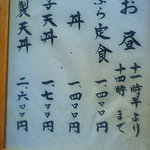 お昼
十一時半より
十四時まで
ぷら定食 一、四〇〇円
丼 一、四〇〇円
子天丼 一、七〇〇円
製天丼 二、六〇〇円